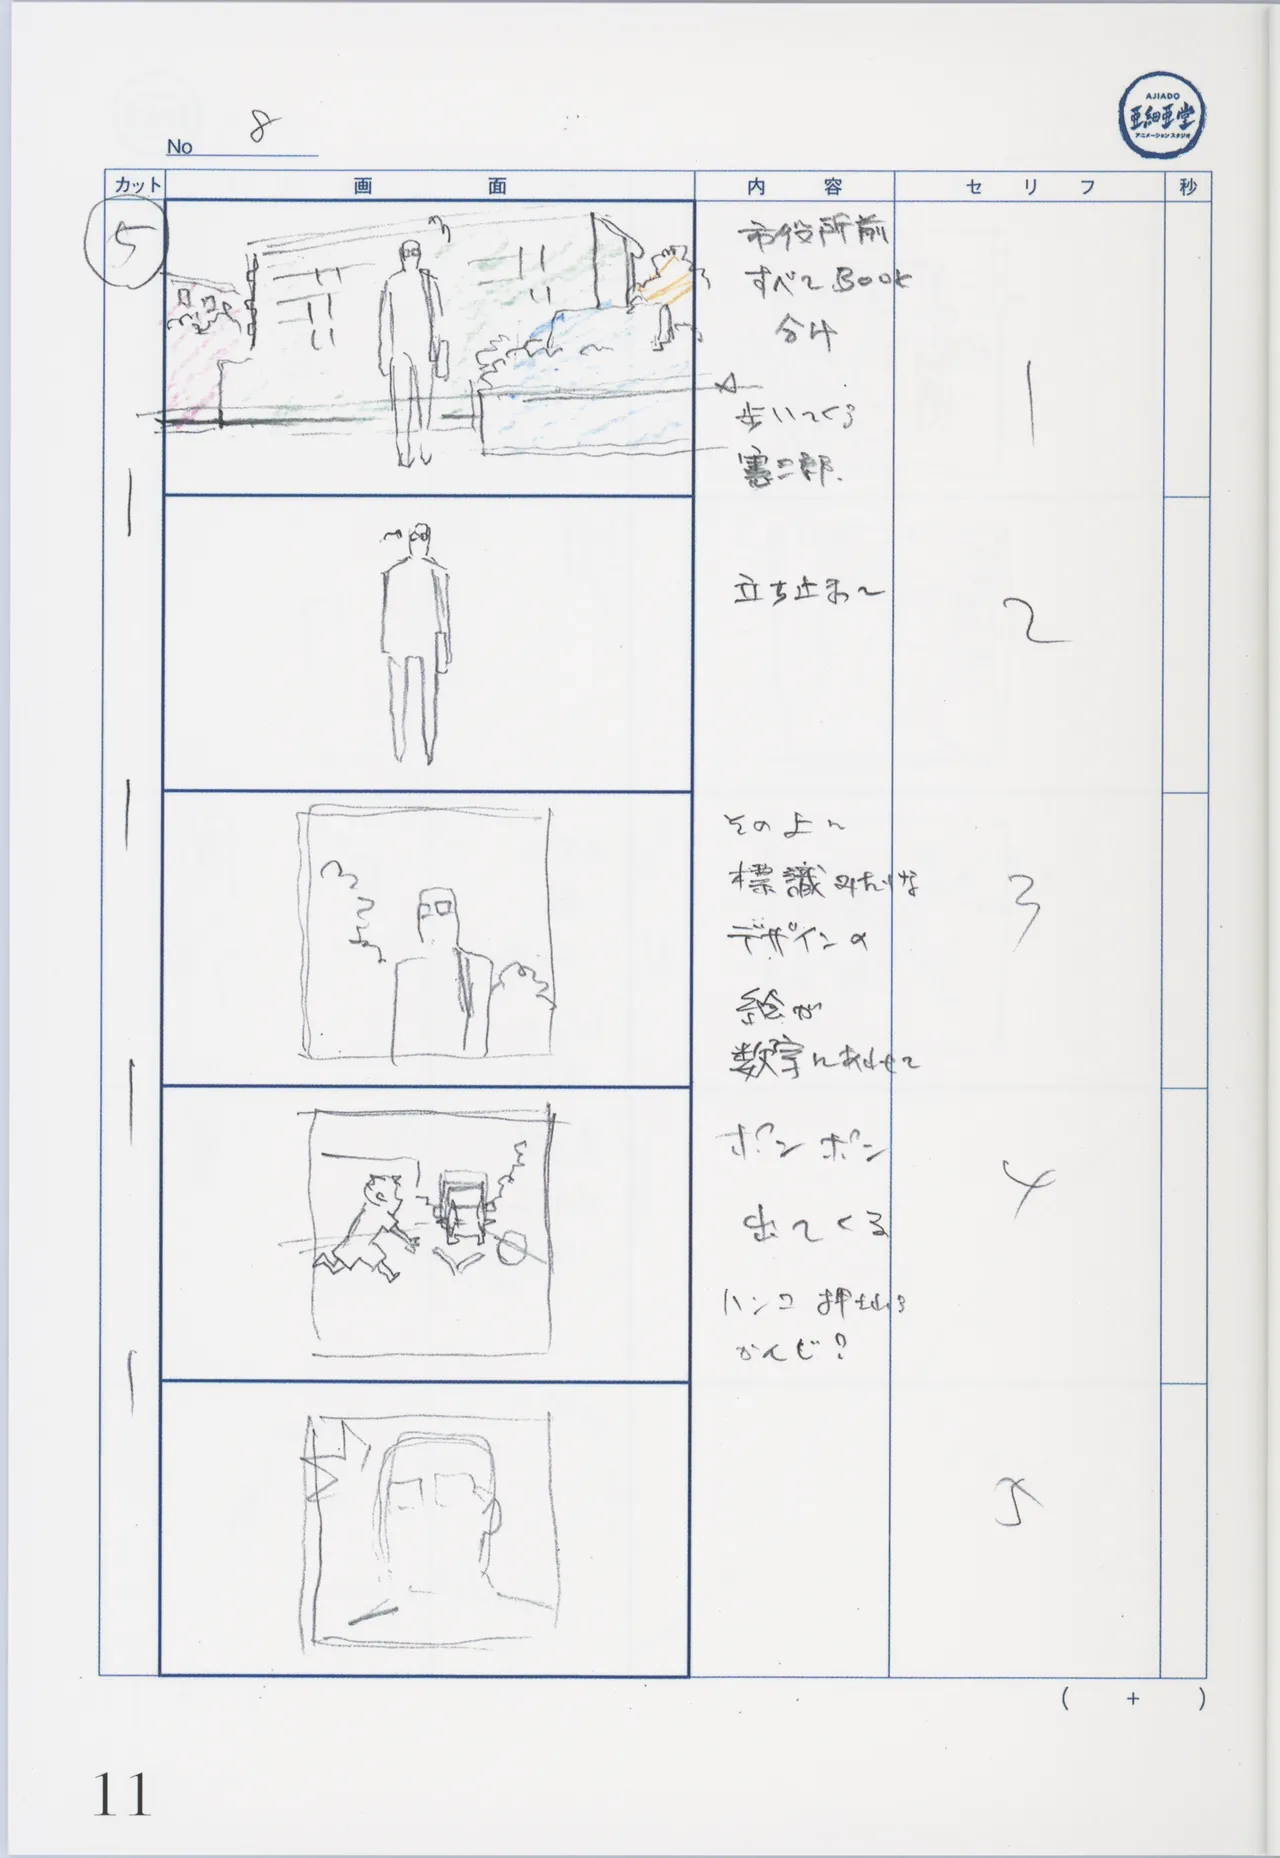 AJIADO
亜細亜堂
アニメーションスタジオ
No 8
カット 画面 内容 セリフ 秒
5
市役所前
すべてBook
分け
歩いてくる
憲二郎.
1
立ち止まって
2
その上に
標識みたいな
デザインの
絵が
数字にあわせて
3
ポンポン
出てくる
ハンコ押される
かんじ?
4
5
( + )
11